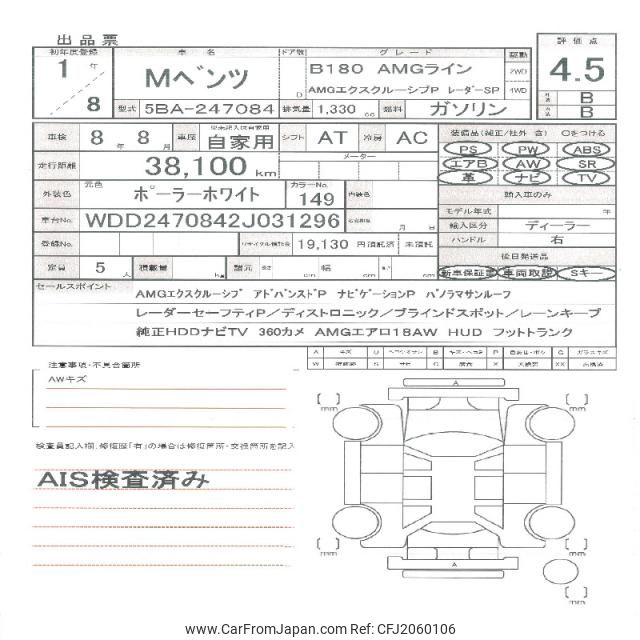 出品票
初年度登録 車名 ドア数 グレード 駆動 評価点
1 年 / 8
Mベンツ
D
B180 AMGライン
AMGエクスクルーシブP レーダーSP
2WD
4WD
4.5
B
B
型式 5BA-247084 排気量 1,330 cc 燃料 ガソリン
車検 8 年 8 月 車歴 自家用 シフト AT 冷房 AC
装備品(純正/社外 含) ○をつける
PS PW ABS
エアB AW SR
革 ナビ TV
走行距離 38,100 km メーター
輸入車のみ
外装色 元色 ポーラーホワイト カラーNo. 149 内装色
モデル年式 年
車台No. WDD2470842J031296 月 日
輸入区分 ディーラー
ハンドル 右
登録No. リサイクル預託金 19,130 円 預託済 未預託
後日発送品
定員 5 人 積載量 kg 諸元 長さ cm 幅 cm 高さ cm
新車保証書 車両取説 Sキー
セールスポイント
AMGエクスクルーシブ アドバンスドP ナビゲーションP パノラマサンルーフ
レーダーセーフティP/ディストロニック/ブラインドスポット/レーンキープ
純正HDDナビTV 360カメ AMGエアロ18AW HUD フットトランク
A キズ U B P G ガラスキズ
W S C X XX
注意事項・不具合箇所
AWキズ
検査員記入欄、修復歴「有」の場合は修復箇所・交換箇所を記入
AIS検査済み
A
[ ] mm
[ ] mm
[ ] mm
[ ] mm
A
[ ] mm
www.CarFromJapan.com Ref: CFJ2060106